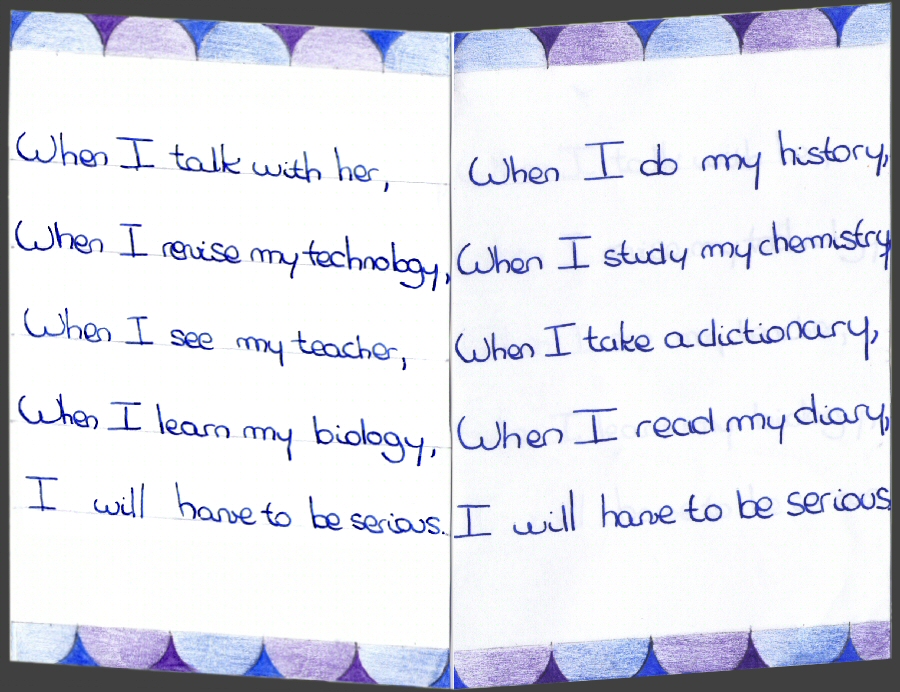 When I talk with her,
When I revise my technology,
When I see my teacher,
When I learn my biology,
I will have to be serious.
When I do my history,
When I study my chemistry
When I take a dictionary,
When I read my diary,
I will have to be serious